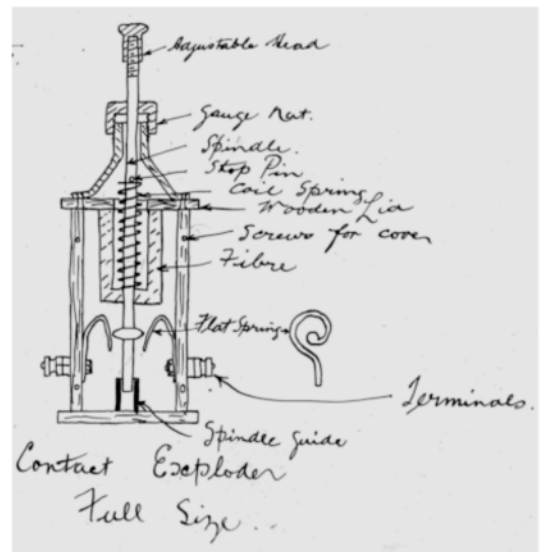 Adjustable Head
Gauge Nut.
Spindle.
Stop Pin
Coil Spring
Wooden Lid
Screws for cover
Fibre
Flat Spring
Terminals.
Spindle Guide
Contact Exploder
Full Size..